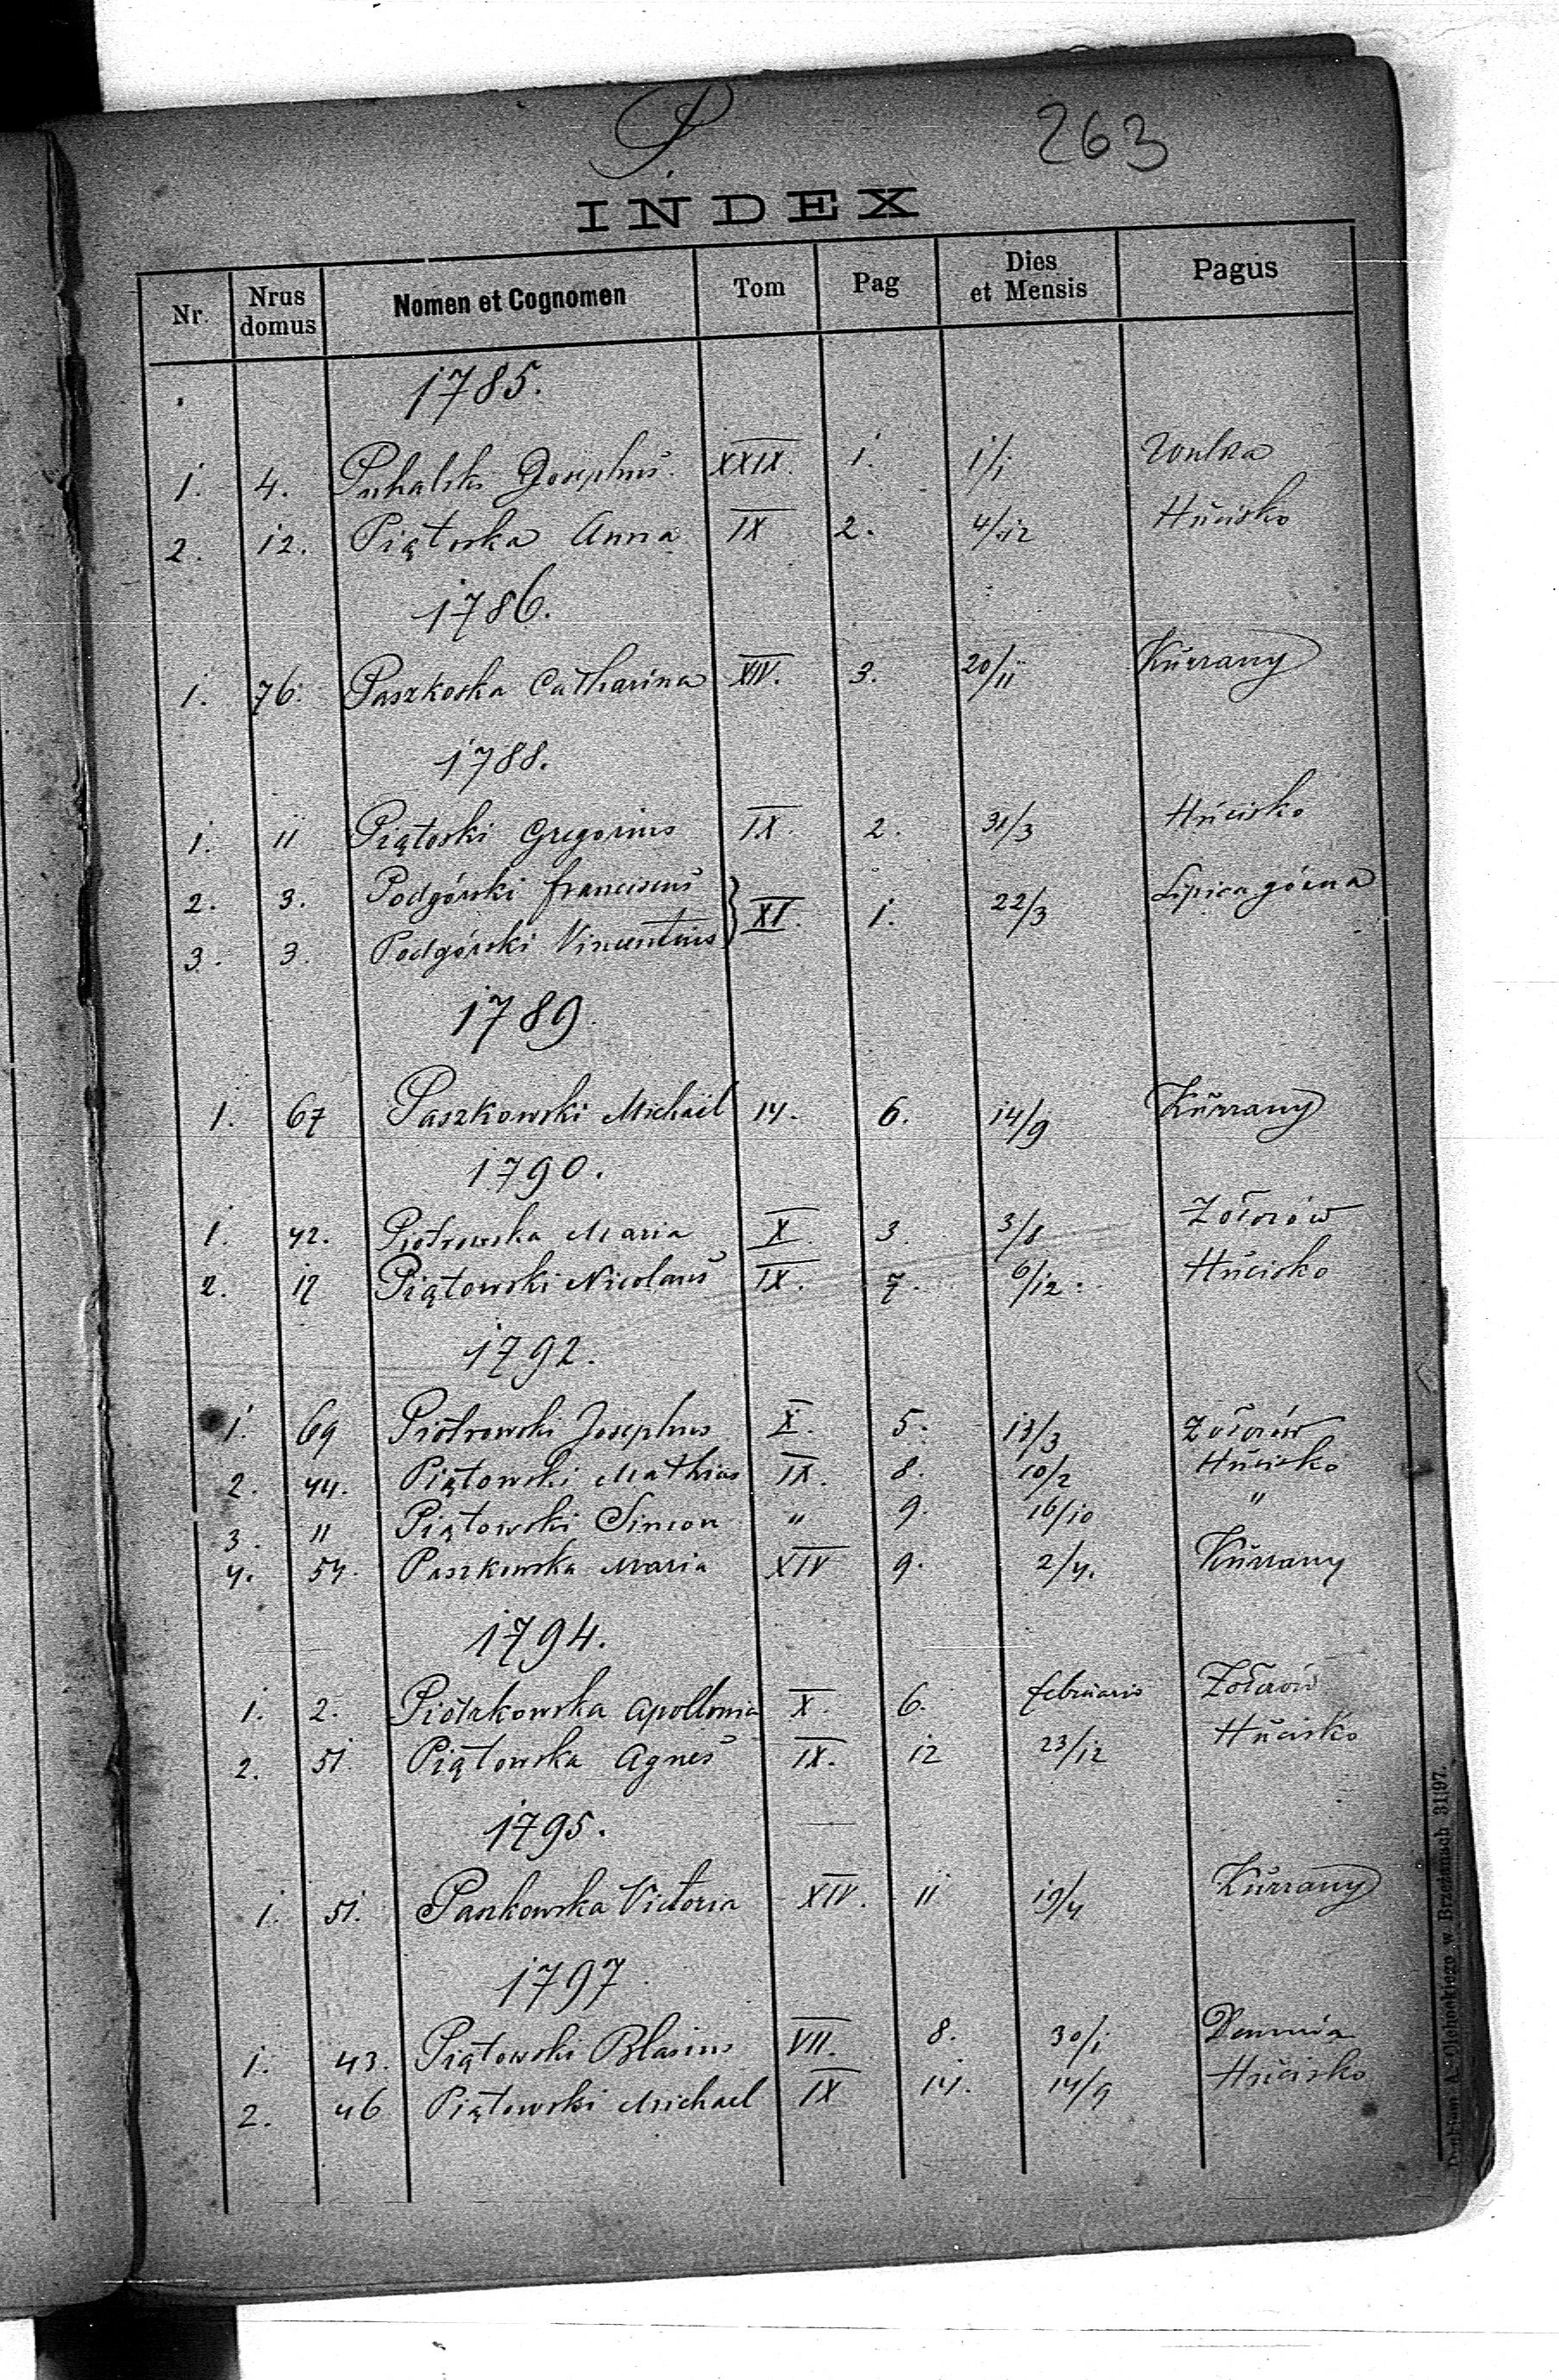 P.
263
INDEX
Nr. Nrus domus Nomen et Cognomen Tom Pag Dies et Mensis Pagus
1785.
1. 4. Puhalski Josephus. XXIX. 1. 1/1 Wulka
2. 12. Piątoska Anna IX 2. 4/12 Hucisko
1786.
1. 76. Paszkoska Catharina XIV. 3. 20/11 Kurzany
1788.
1. 11 Piątoski Gregorius IX. 2. 31/3 Hucisko
2. 3. Podgórski Franciscus } XI. 1. 22/3 Lipica górna
3. 3. Podgórski Vincentius
1789.
1. 67 Paszkowski Michaël 14. 6. 14/9 Kurzany
1790.
1. 42. Piotrowska Maria X. 3. 3/8 Zołnów
2. 12 Piątowski Nicolaus IX. 7. 6/12. Hucisko
1792.
1. 69 Piotrowski Josephus X. 5. 13/3
2. 44. Piątowski Mathias IX. 8. 10/2 Hucisko
3. 11 Piątowski Simon " 9. 16/10 "
4. 54. Paszkowska Maria XIV 9. 2/4. Kurzany
1794.
1. 2. Piotrkowska Apollonia X. 6. februario
2. 51. Piątowska Agnes IX. 12 23/12 Hucisko
1795.
1. 51. Paszkowska Victoria XIV. 11 19/4 Kurzany
1797.
1. 43. Piątowski Blasius VII. 8. 30/1 Demnia
2. 46 Piątowski Michael IX 14. 14/9 Hucisko
w Brzeżanach 31|97.